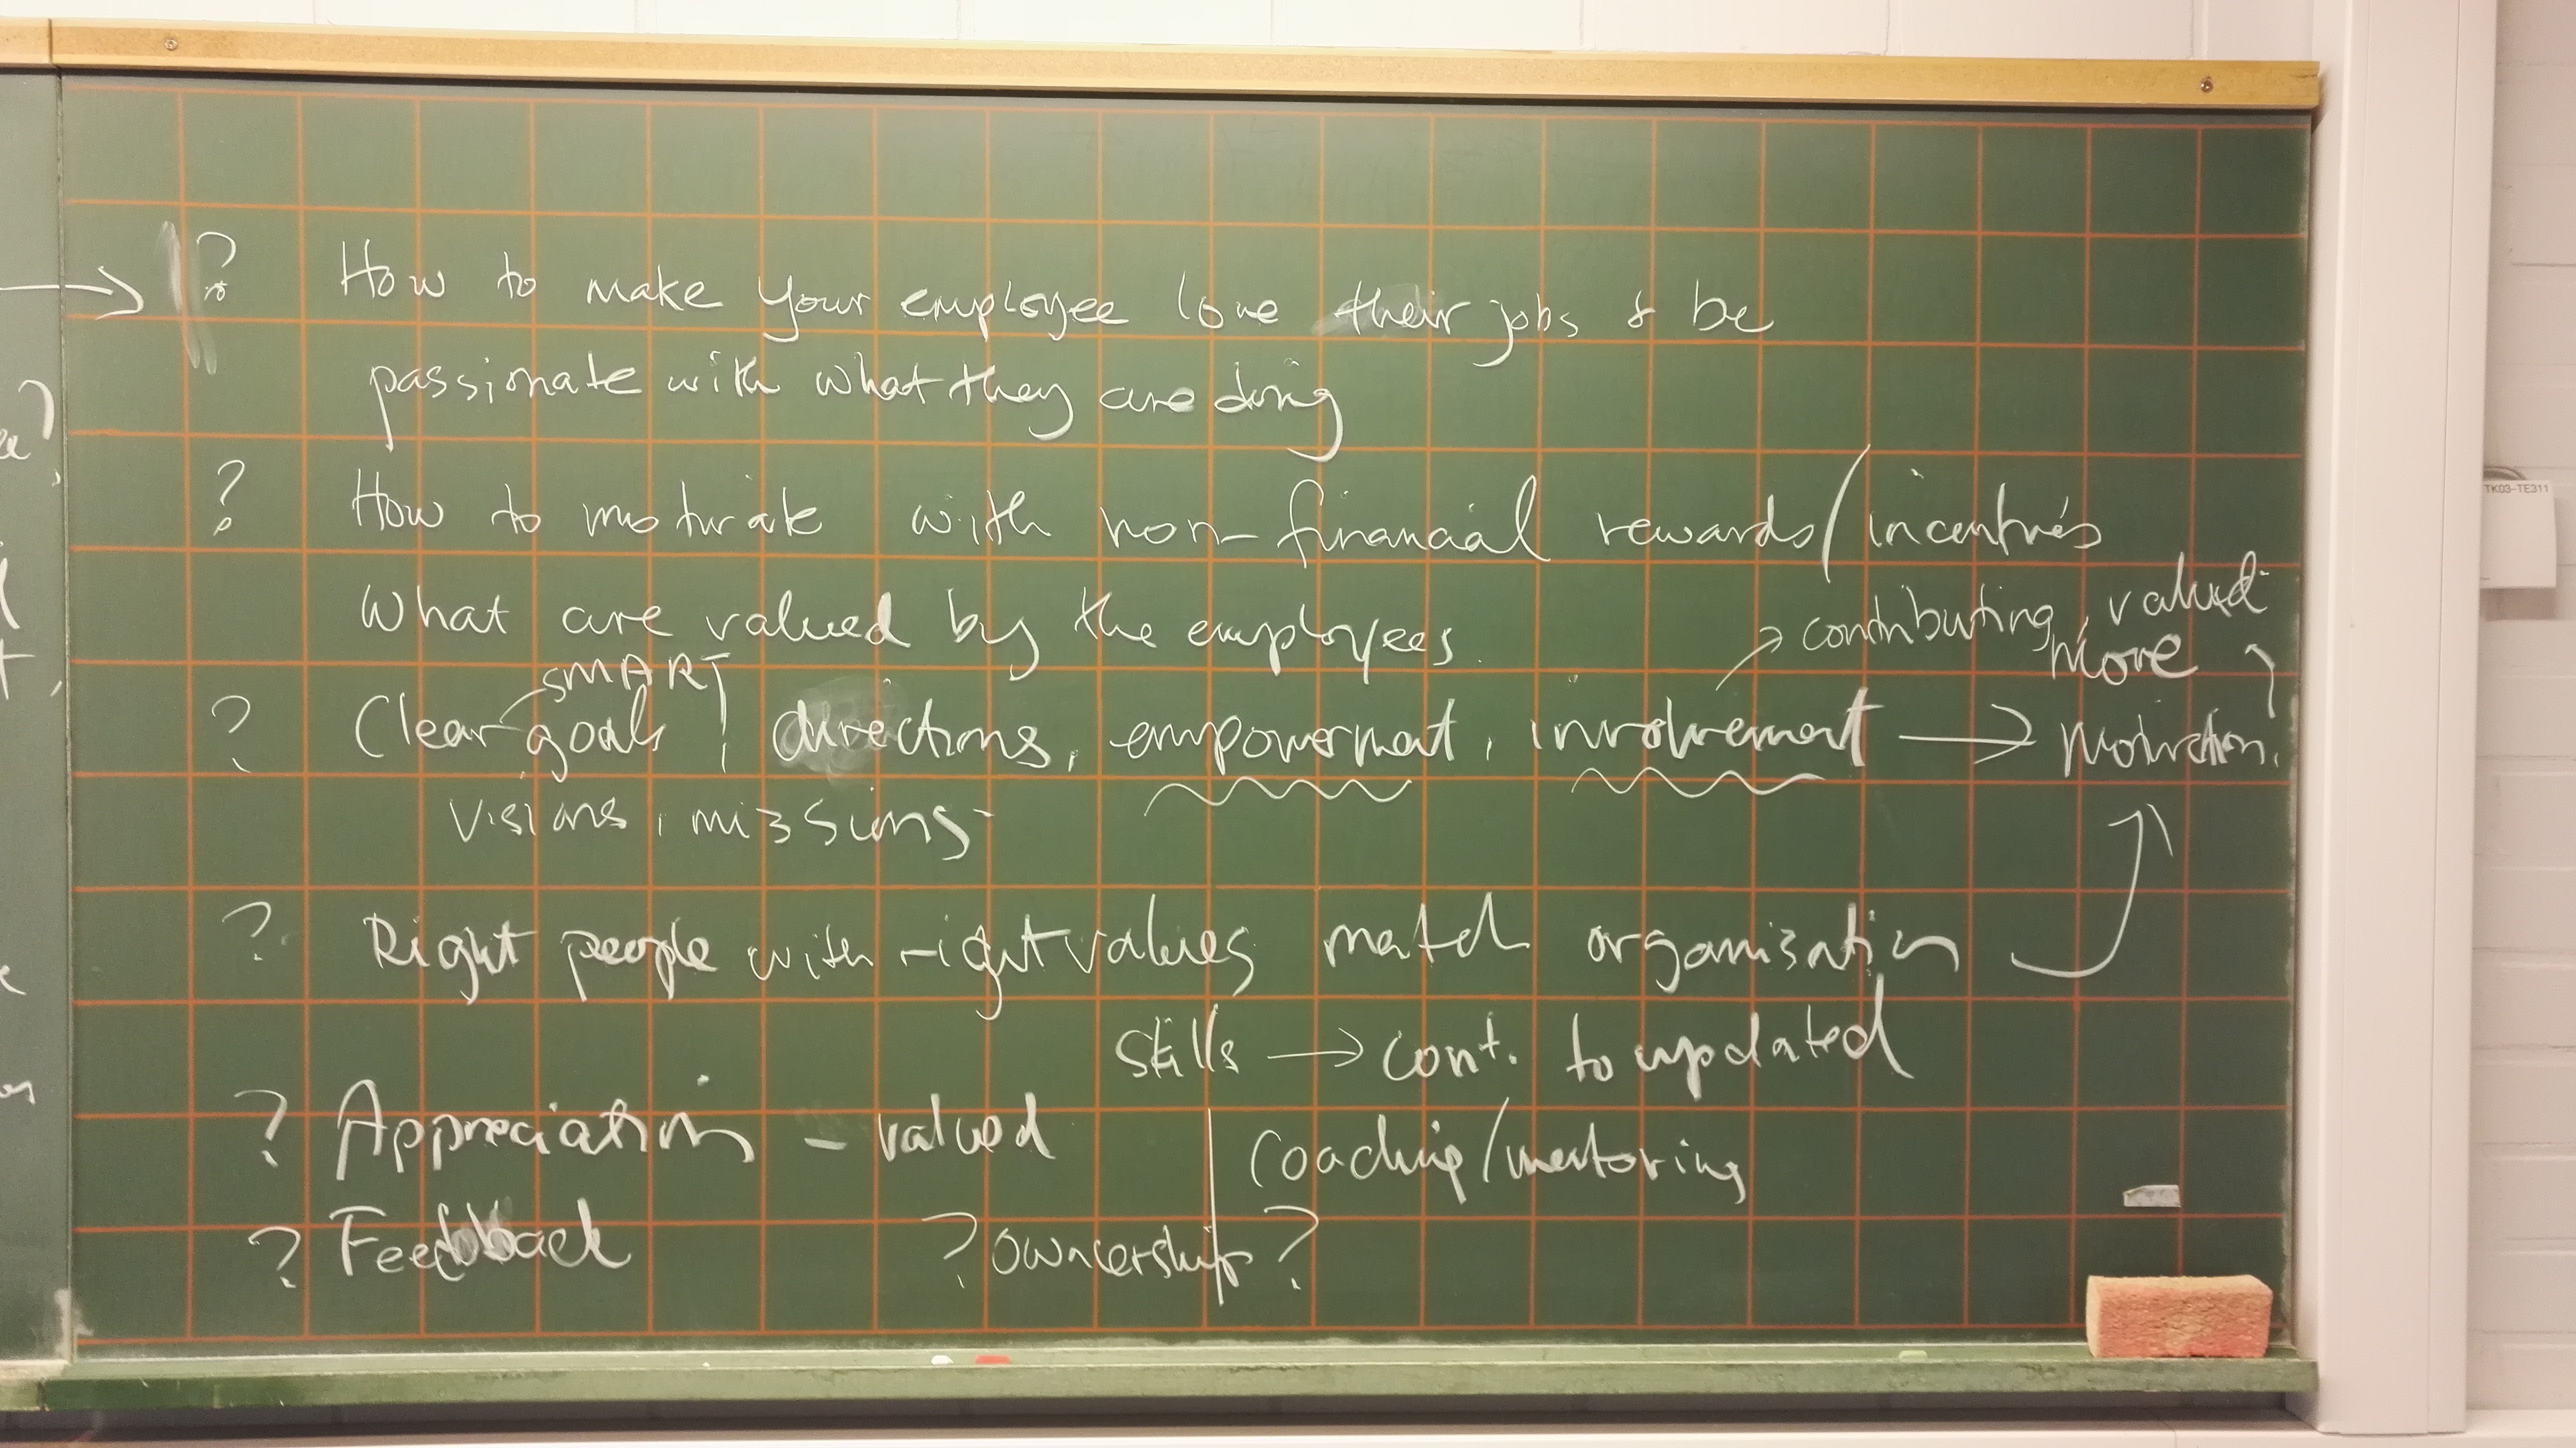 ? How to make your employee love their jobs & be
passionate with what they are doing
? How to motivate with non-financial rewards/incentives
What are valued by the employees.
contributing, valued
more
SMART
? Clear goals, directions, empowerment, involvement → motivation.
visions, missions
? Right people with right values match organisation
skills → cont. to updated
? Appreciation - valued
Coaching/mentoring
? Feedback
? ownership ?
TK03-TE311